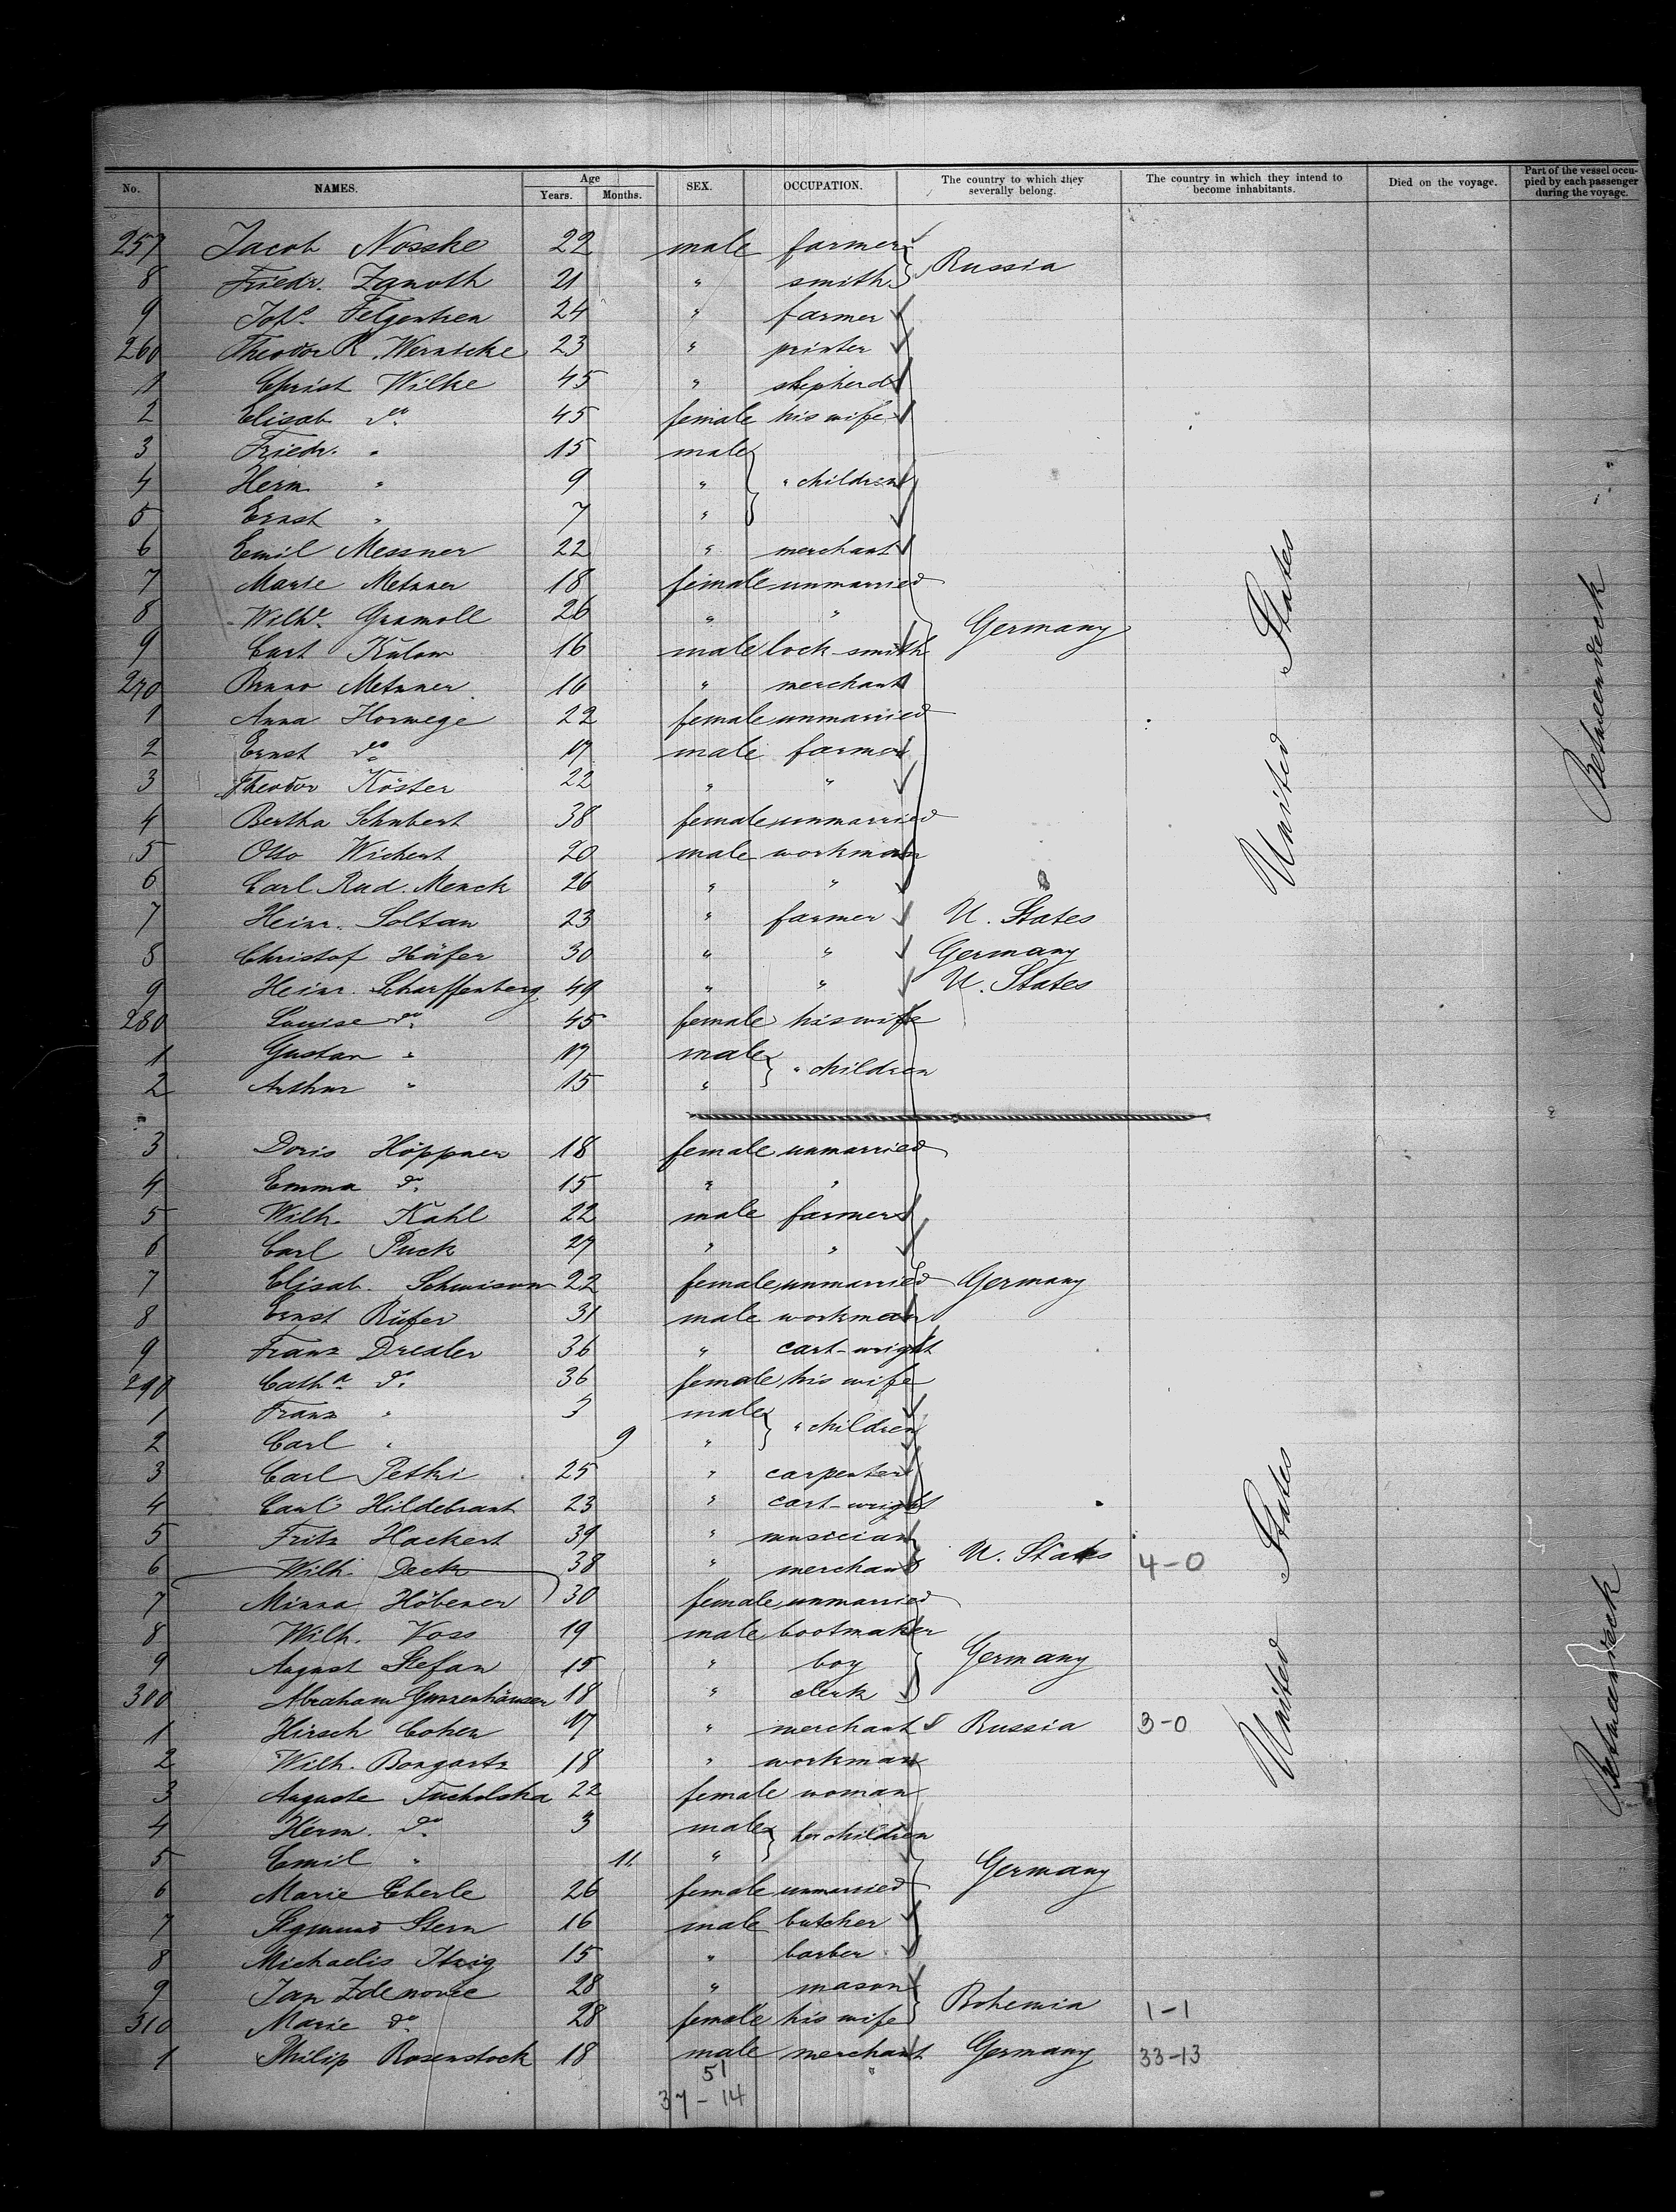 No. NAMES. Age Years. Months. SEX. OCCUPATION. The country to which they severally belong. The country in which they intend to become inhabitants. Died on the voyage. Part of the vessel occupied by each passenger during the voyage.
257 Jacob Nosske 22 male farmer Russia
8 Friedr. Zanoth 21 " smith
9 Johs. Felgentren 24 " farmer
260 Theodor R. Wernicke 23 " printer
1 Christ Wilke 45 " shepherd
2 Elisab do. 45 female his wife
3 Friedr. " 15 male
4 Herm " 9 " " children
5 Ernst " 7 "
6 Emil Messner 22 " merchant
7 Marie Metzner 18 female unmarried
8 Wilhe. Gramoll 26 " " Germany
9 Curt Kulow 16 male lock-smith
270 Bruno Metzner 16 " merchant
1 Anna Horwege 22 female unmarried
2 Ernst do 17 male farmer
3 Theodor Köster 22 " "
4 Bertha Schubert 38 female unmarried
5 Otto Wichert 20 male workman
6 Carl Rud. Menck 26 " "
7 Heinr. Soltau 23 " farmer U. States
8 Christof Häfer 30 " " Germany
9 Heinr. Scharffenberg 49 " " U. States
280 Louise do. 45 female his wife
1 Gustav " 17 male " children
2 Arthur " 15 "
3 Doris Höppner 18 female unmarried
4 Emma do. 15 " "
5 Wilh. Kahl 22 male farmer
6 Carl Puck 27 " "
7 Elisab. Schwison 22 female unmarried Germany
8 Ernst Rüfer 31 male workman
9 Franz Drexler 36 " cart-wright
290 Catha. do. 36 female his wife
1 Franz " 3 male " children
2 Carl " 9 "
3 Carl Pethi 25 " carpenter
4 Carl Hildebrant 23 " cart-wright
5 Fritz Hackert 39 " musician
6 Wilh. Deck 38 " merchant U. States 4-0
7 Minna Höbener 30 female unmarried
8 Wilh. Voss 19 male bootmaker
9 August Stefan 15 " boy Germany
300 Abraham Gunzenhäuser 18 " clerk
1 Hirsch Cohen 17 " merchant Russia 3-0
2 Wilh. Bongartz 18 " workman
3 Auguste Tucholska 22 female woman
4 Herm. do. 3 male her children
5 Emil " 11 "
6 Marie Eberle 26 female unmarried Germany
7 Sigmund Stern 16 male butcher
8 Michaelis Itzig 15 " barber
9 Jan Zdenovec 28 " mason
310 Marie do 28 female his wife Bohemia 1-1
1 Philip Rosenstock 18 male merchant Germany 33-13
51 "
37-14
United States
United States
Betweendeck
Betweendeck